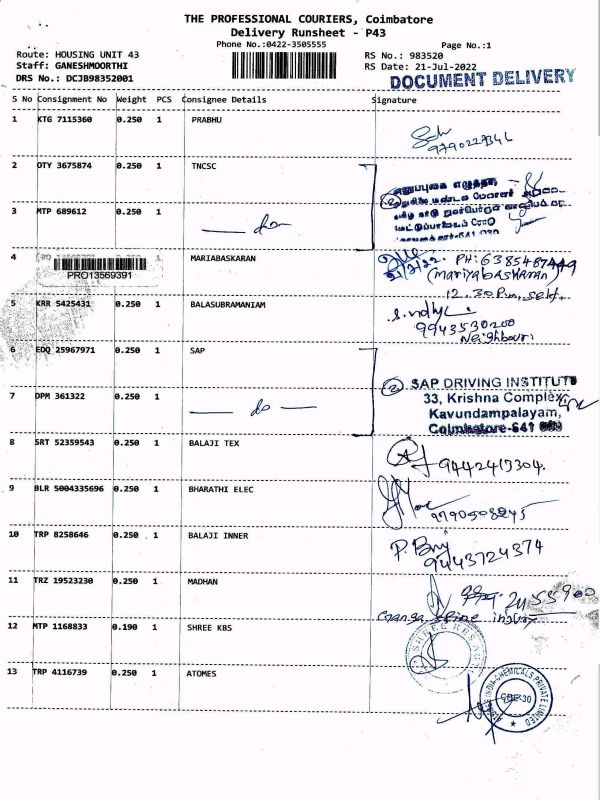 THE PROFESSIONAL COURIERS, Coimbatore
Delivery Runsheet - P43
Phone No.:0422-3505555
Page No.:1
Route: HOUSING UNIT 43
RS No.: 983520
Staff: GANESHMOORTHI
RS Date: 21-Jul-2022
DRS No.: DCJB98352001
DOCUMENT DELIVERY
S No Consignment No Weight PCS Consignee Details Signature
1 KTG 7115360 0.250 1 PRABHU
9790227346
2 OTY 3675874 0.250 1 TNCSC
3 MTP 689612 0.250 1 — do —
4 PRO13569391 MARIABASKARAN
PH: 6385487449
(MARIYABASKARAN)
12.30 Pm, self.
5 KRR 5425431 0.250 1 BALASUBRAMANIAM
9943530200
Neighbour
6 EDQ 25967971 0.250 1 SAP
7 DPM 361322 0.250 1 — do —
② SAP DRIVING INSTITUTE
33, Krishna Complex,
Kavundampalayam,
Coimbatore-641
8 SRT 52359543 0.250 1 BALAJI TEX
9442417304
9 BLR 5004335696 0.250 1 BHARATHI ELEC
10 TRP 8258646 0.250 1 BALAJI INNER
9443724374
11 TRZ 19523230 0.250 1 MADHAN
12 MTP 1168833 0.190 1 SHREE KBS
13 TRP 4116739 0.250 1 ATOMES
INDIA-CHEMICALS PRIVATE LIMITED
CBE-30